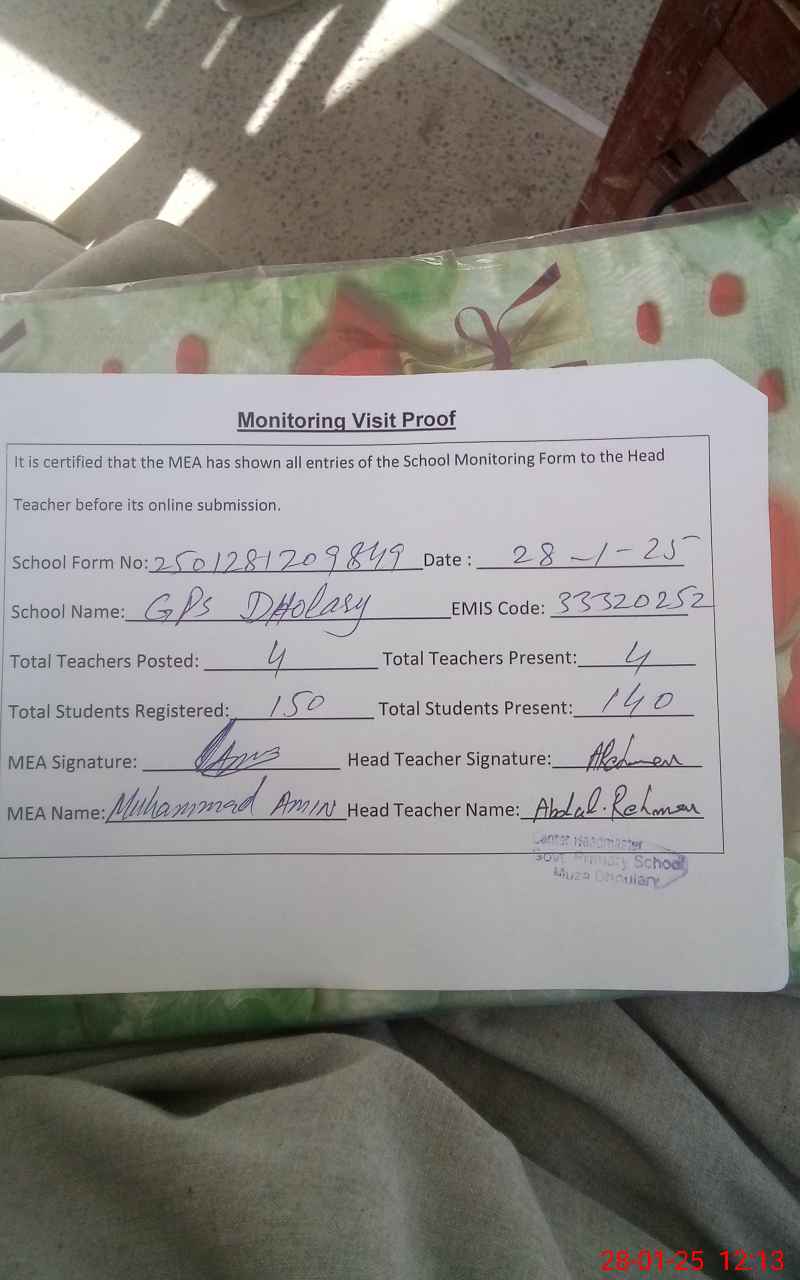 Monitoring Visit Proof
It is certified that the MEA has shown all entries of the School Monitoring Form to the Head
Teacher before its online submission.
School Form No: 2501281209849 Date : 28-1-25
School Name: GPS DHolary EMIS Code: 33320252
Total Teachers Posted: 4 Total Teachers Present: 4
Total Students Registered: 150 Total Students Present: 140
MEA Signature: Head Teacher Signature: ARehman
MEA Name: Muhammad Amin Head Teacher Name: Abdul.Rehman
Center Headmaster
Govt. Primary School
Muza
28-01-25 12:13